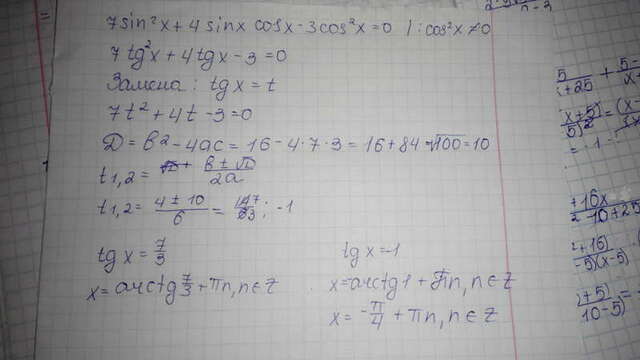 7sin²x + 4 sinx cosx - 3cos²x = 0 | : cos²x ≠ 0
7 tg²x + 4 tgx - 3 = 0
Замена : tgx = t
7t² + 4t - 3 = 0
D = b² - 4ac = 16 - 4·7·3 = 16 + 84 = √100 = 10
t1,2 = b ± √D / 2a
t1,2 = 4 ± 10 / 6 = 14 7 / 6 3 ; -1
tg x = 7/3
x = arctg 7/3 + πn, n ∈ Z
tg x = -1
x = arctg 1 + πn, n ∈ Z
x = -π/4 + πn, n ∈ Z
5
x+25
+ 5-
(x+5)
5)²
= (x
= 1
+16x
2-10+25
²+16)
-5)(x-5)
+5)
10-5)